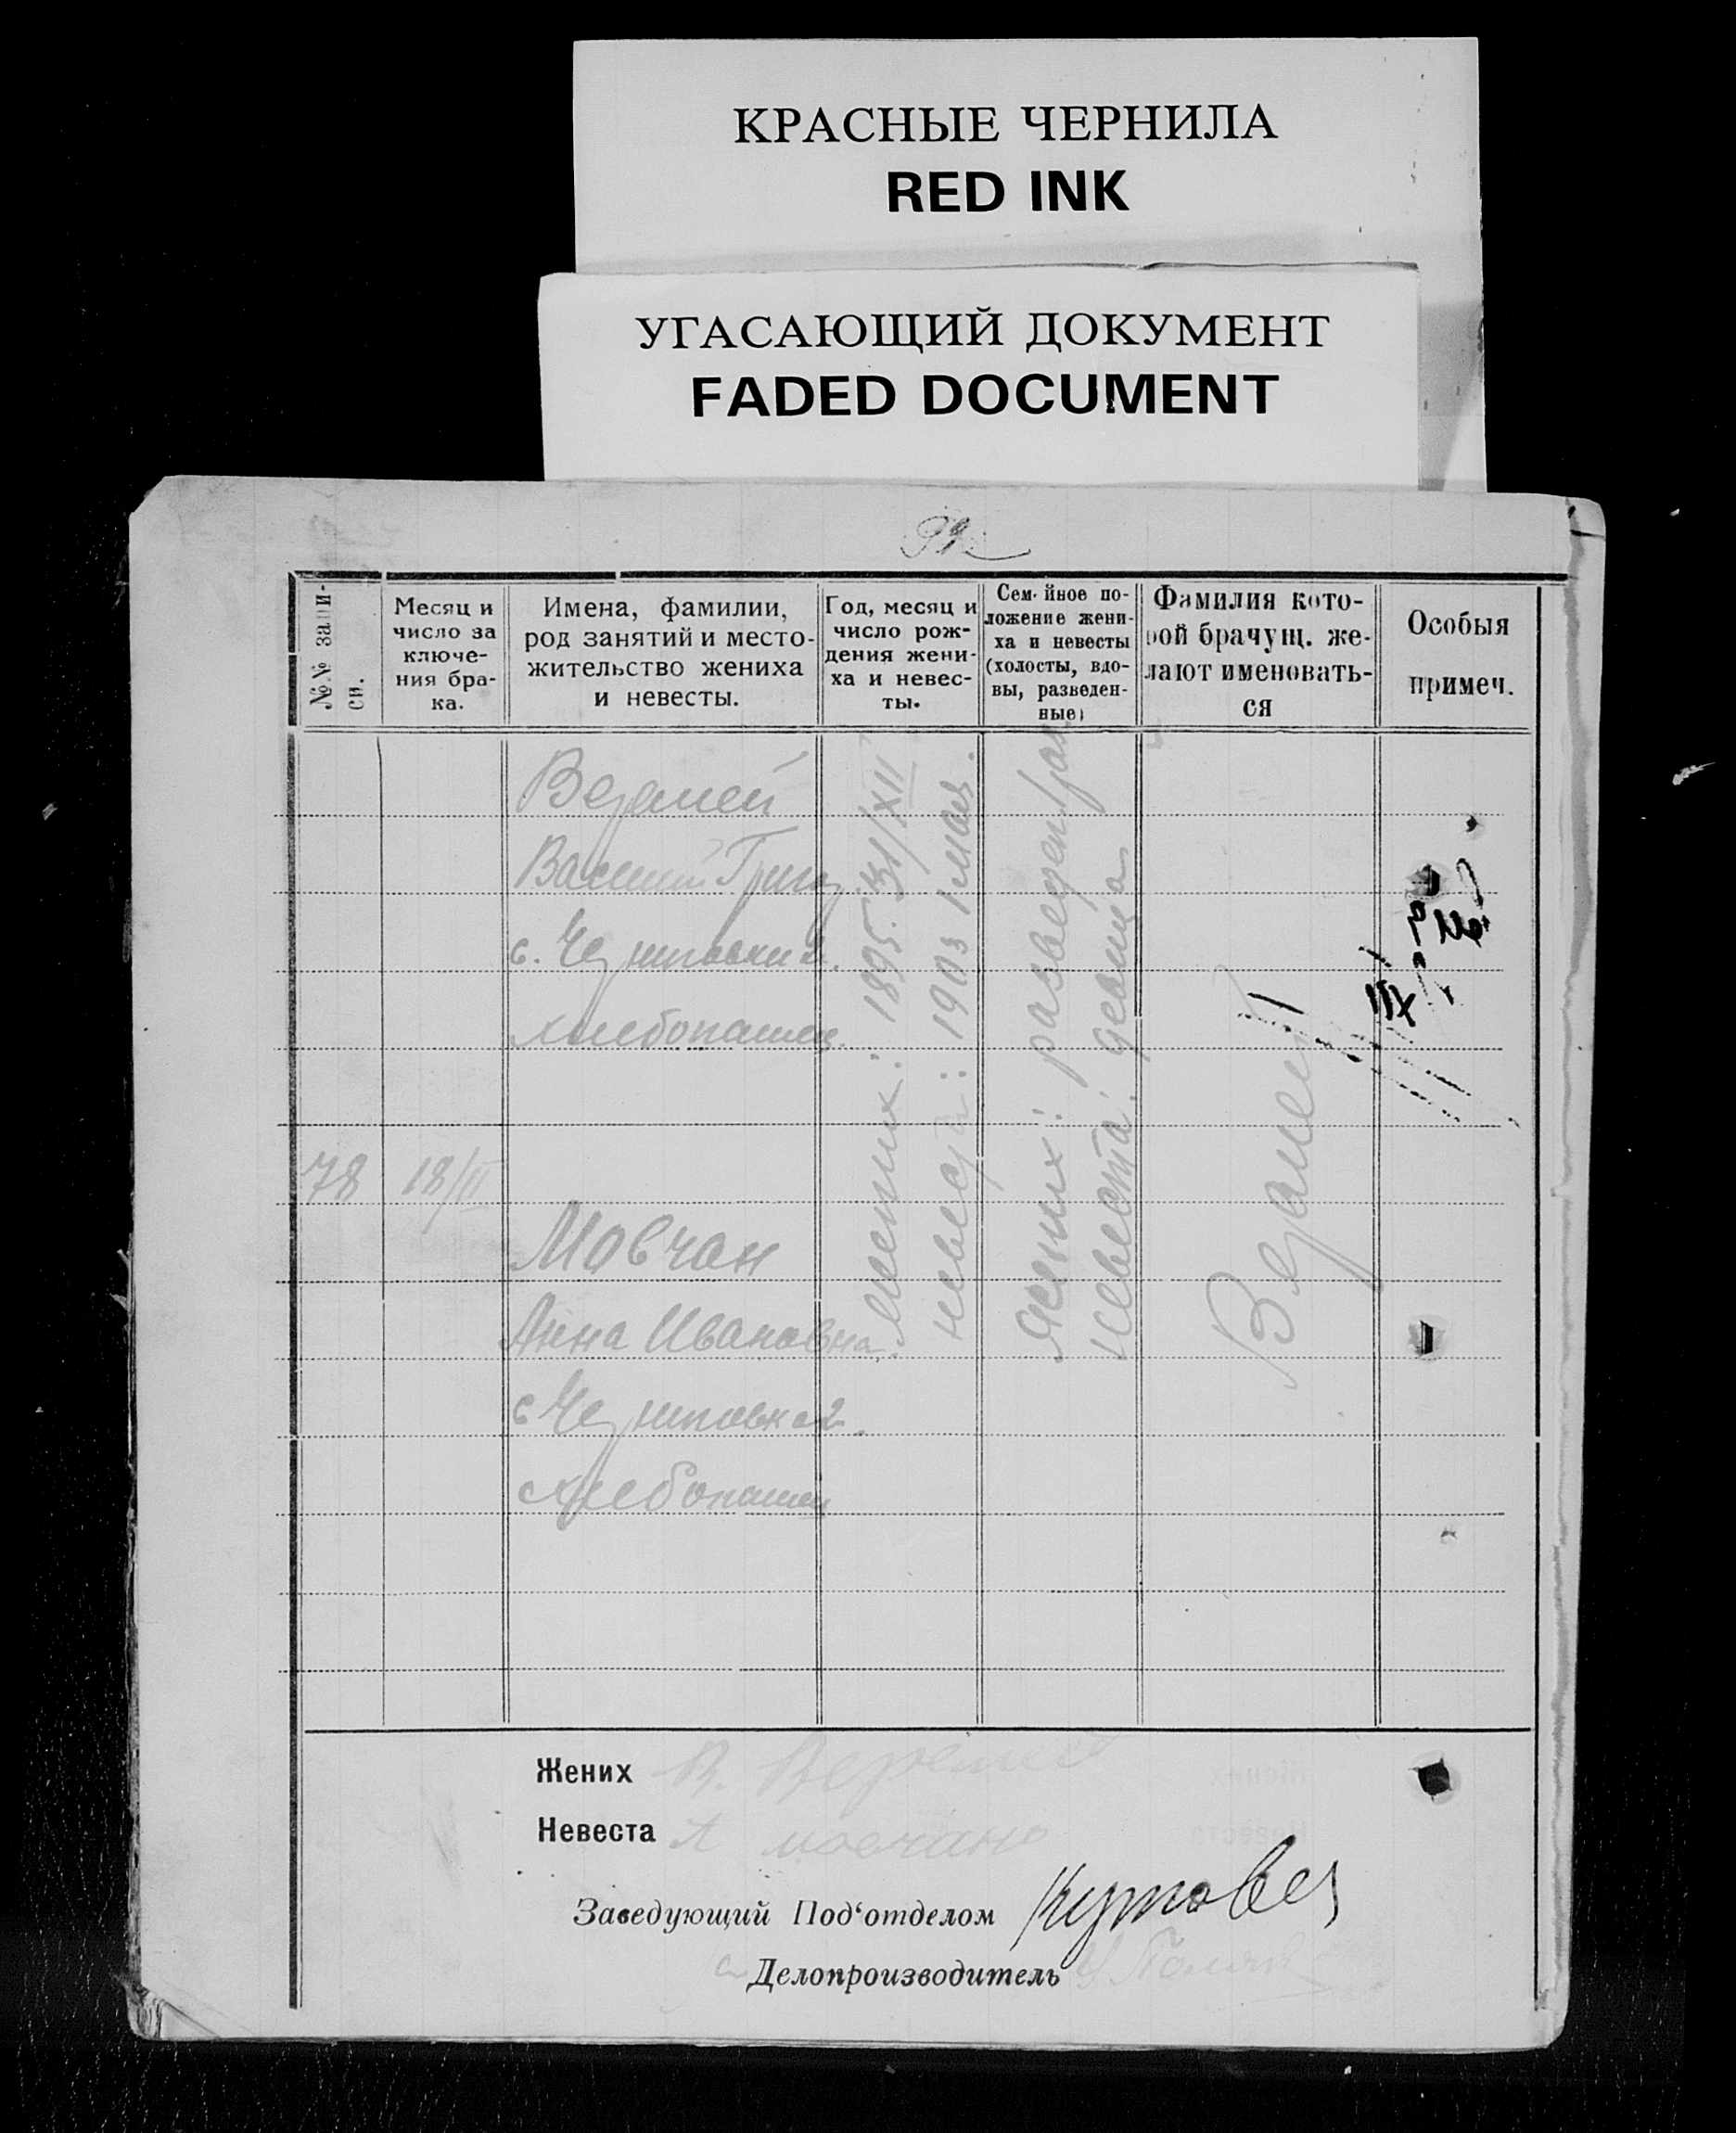 КРАСНЫЕ ЧЕРНИЛА
RED INK
УГАСАЮЩИЙ ДОКУМЕНТ
FADED DOCUMENT
№№ запи-
си.
Месяц и
число за
ключе-
ния бра-
ка.
Имена, фамилии,
род занятий и место-
жительство жениха
и невесты.
Год, месяц и
число рож-
дения жени-
ха и невес-
ты.
Семейное по-
ложение жени-
ха и невесты
(холосты, вдо-
вы, разведен-
ные)
Фамилия кото-
рой брачущ. же-
лают именовать-
ся
Особыя
примеч.
78
18/II
Веремей
Василий Григ
с. Черниговки 2.
хлебопашец.
Мовчан
Анна Ивановна.
с Черниговка 2.
хлебопашец
жених: 1895. 31/XII
невеста: 1903 1 мая.
жених: разведен
невеста: девица
Веремей
XII
Жених В. Веремей
Невеста А мовчан
Заведующий Под'отделом
Делопроизводитель